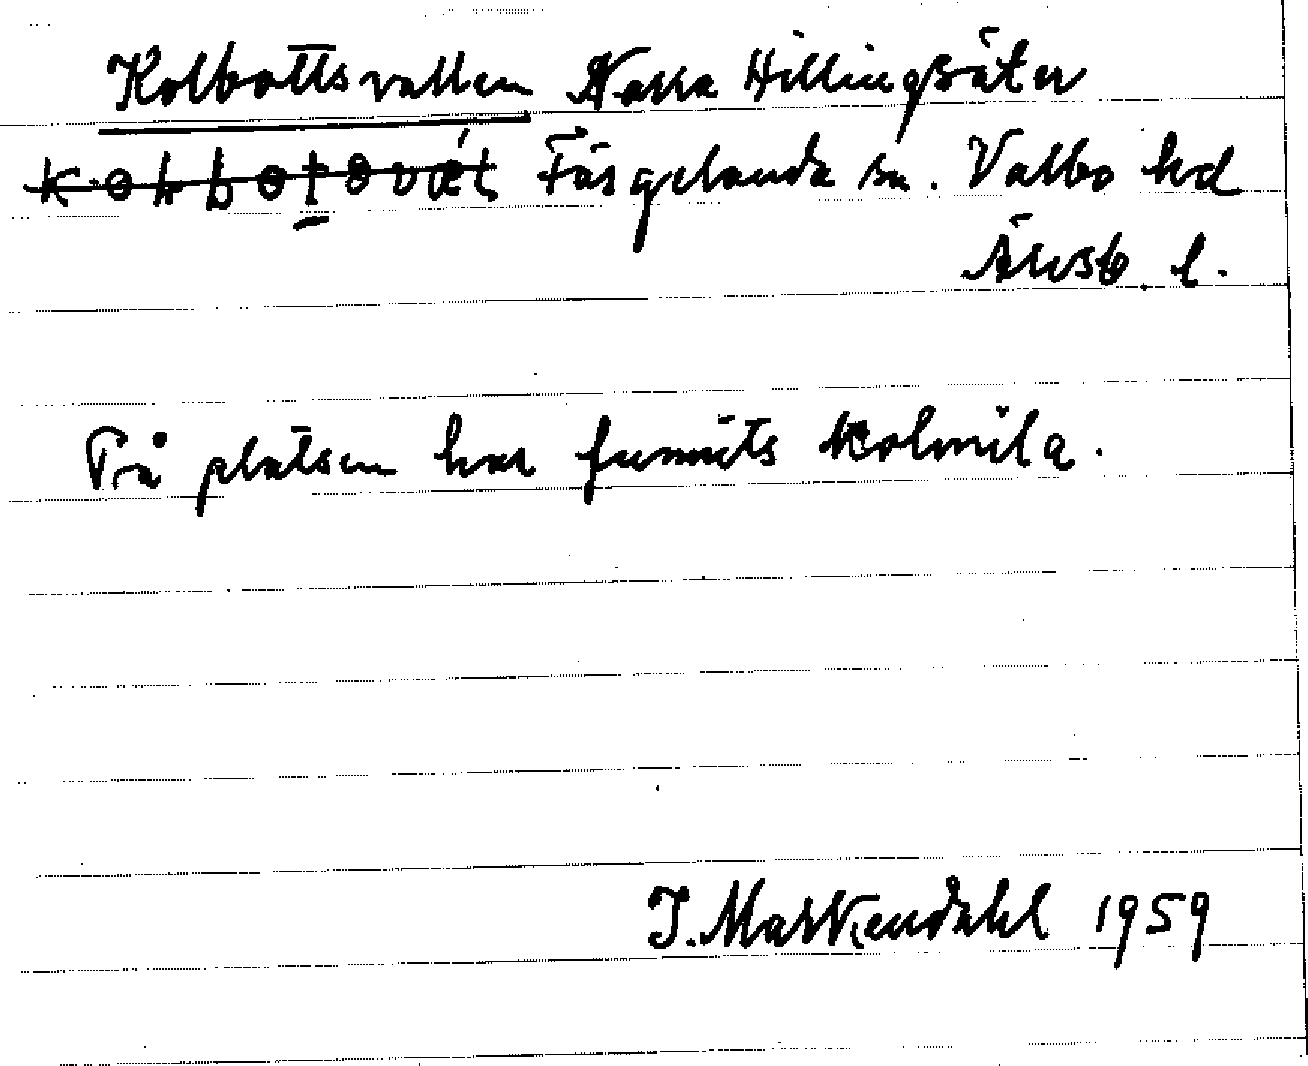 Kolbottsvallen Norra Hillingsäter
Färgelanda sn. Valbo hd
Älvsb. l.
På platsen har funnits kolmila.
J. Markendahl 1959